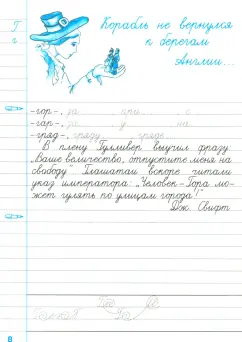 Г
г
Корабль не вернулся
к берегам
Англии...
-гор-, за при с
-гар-, у на
-гряд-, гряду грядк
В плену Гулливер выучил фразу:
„Ваше величество, отпустите меня на
свободу". Глашатаи вскоре читали
указ императора: „Человек-Гора мо-
жет гулять по улицам города!"
Дж. Свифт
8